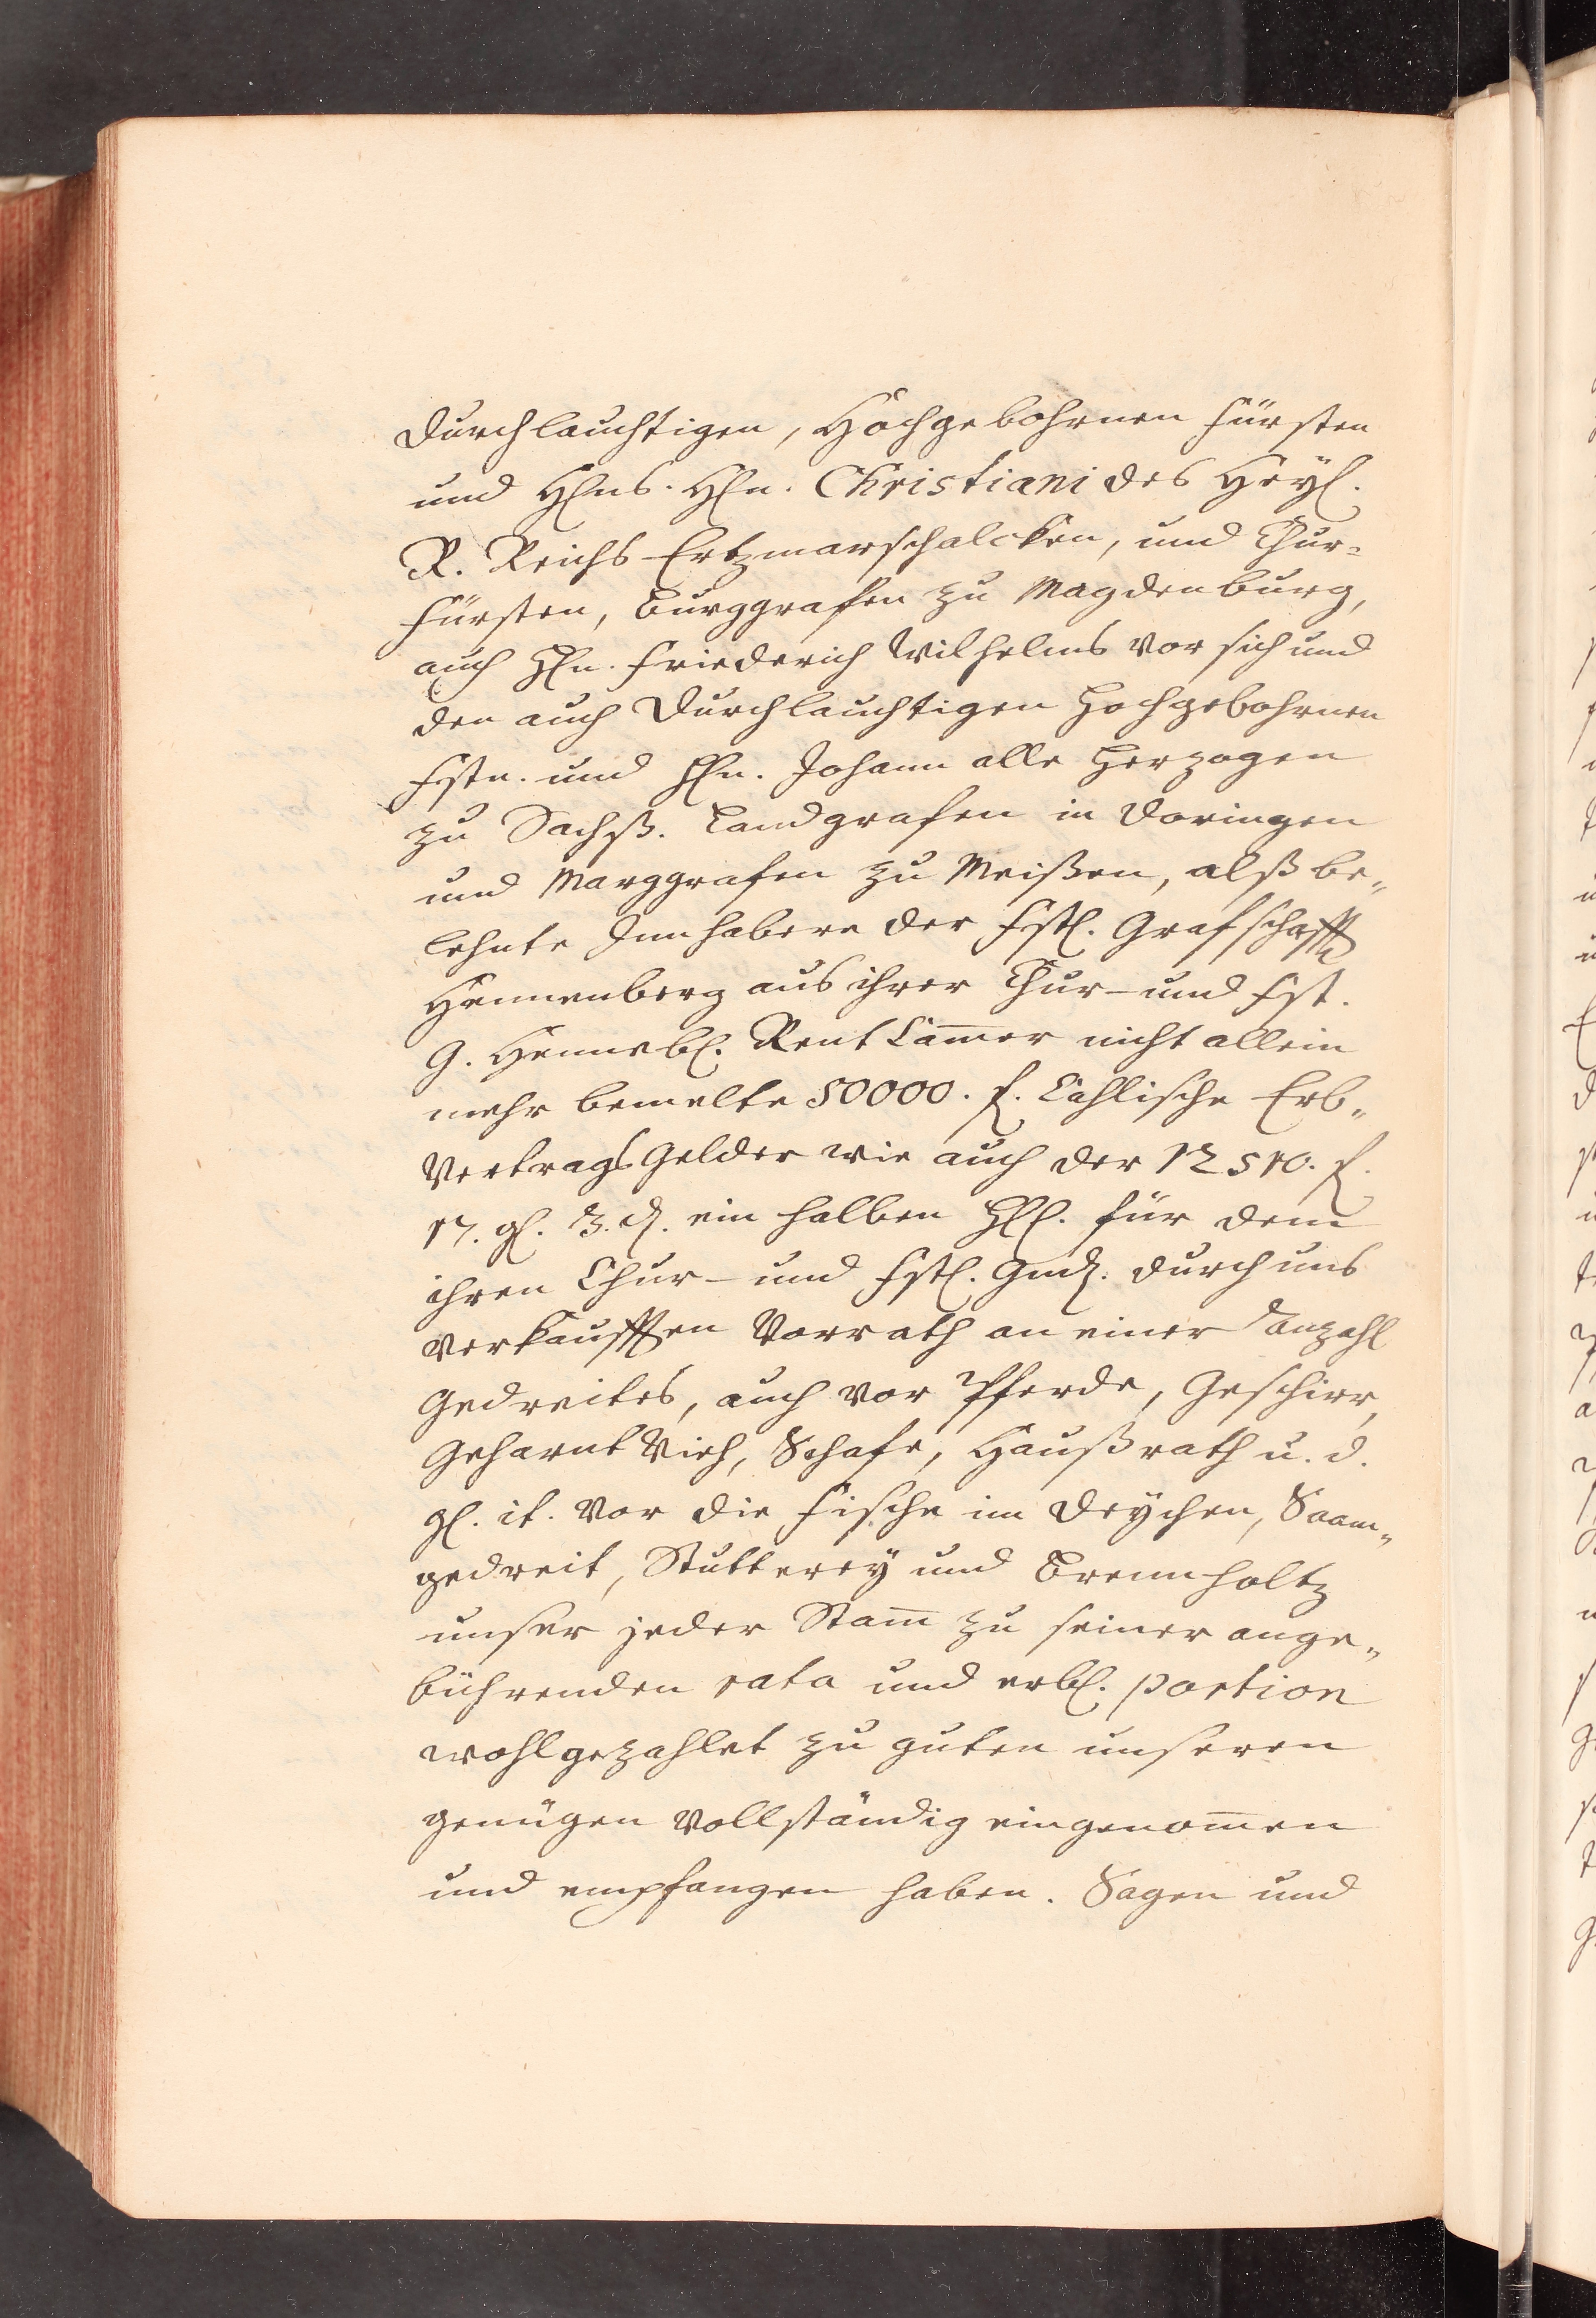 Durchlauchtigen, Hochgebohrnen Fürsten
und Hlns. Hln. Christiani des Heyl.
R. Reichs Ertzmarschalcken, und Chur-
Fürsten, Burggrafen zu Magdenburg,
auch Hln. Friederich Wilhelms vor sich und
den auch Durchlauchtigen Hochgebohrnen
Fstn. und Hln. Johann alle Herzogen
zu Sachß. Landgrafen in Doringen
und Marggrafen zu Meißen, alß be„
lehnte Innhabere der Fstl. Grafschafft
Hennenberg aus ihrer Chur- und Fst.
G. Hennebl. Rent Cam̅er nicht allein
mehr bemelte 50000. f. Cahlische Erb„
Vertrags Gelder wie auch der 12510. f.
17. gl. 3. d. ein halben Hll. für dem
ihren Chur- und Fstl. Gnd. durch uns
verkaufften Vorrath an einer Anzahl
Gedreites, auch vor Pferde, Geschirr,
Gehörnt Vieh, Schafe, Haußrath u. d.
gl. it. vor die Fische im Deychen, Saam„
gedreit, Stutterey und Brennholtz
unser jeder Stam̅ zu seiner ange„
bührenden rata und erbl. portion
wohlgezahlet zu guten unseren
genügen vollständig eingenom̅en
und empfangen haben. Sagen und